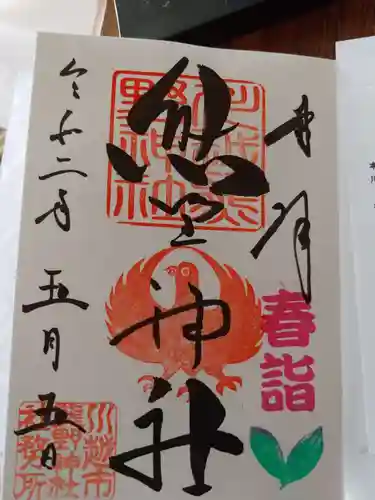 奉拝
春詣
川越熊
野神社
熊野神社
令和二年 五月 五日
川越市
熊野神社
社務所